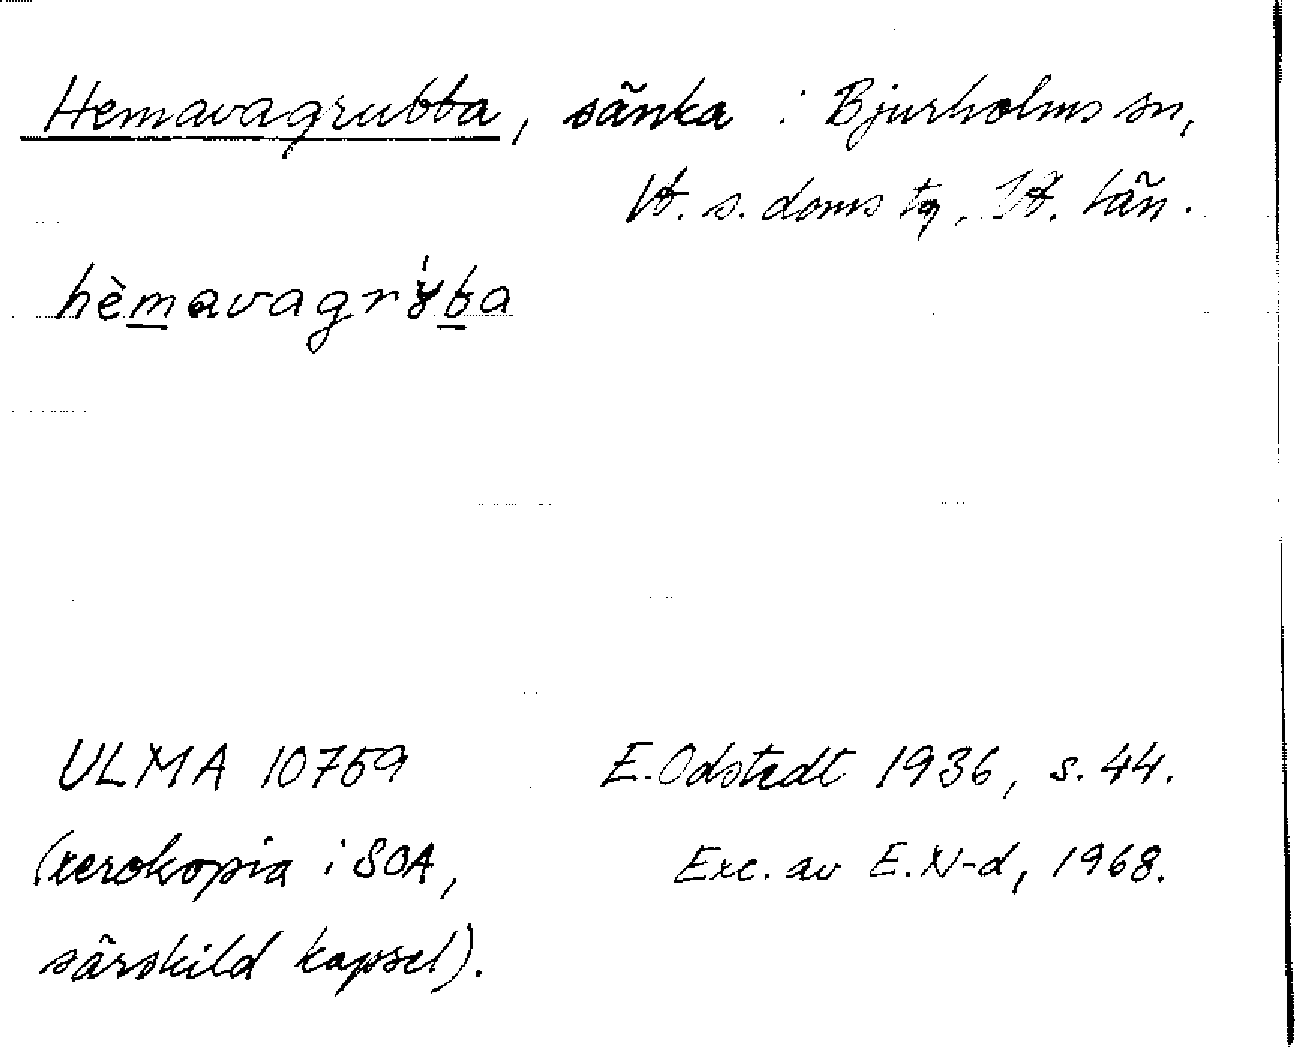 Hemavagrubba, sänka i Bjurholms sn,
Vb. s. doms tg, Vb. län.
hèmavagrýba
ULMA 10759 E. Odstedt 1936, s. 44.
(xerokopia i SOA, Exc. av E. N-d, 1968.
särskild kapsel).